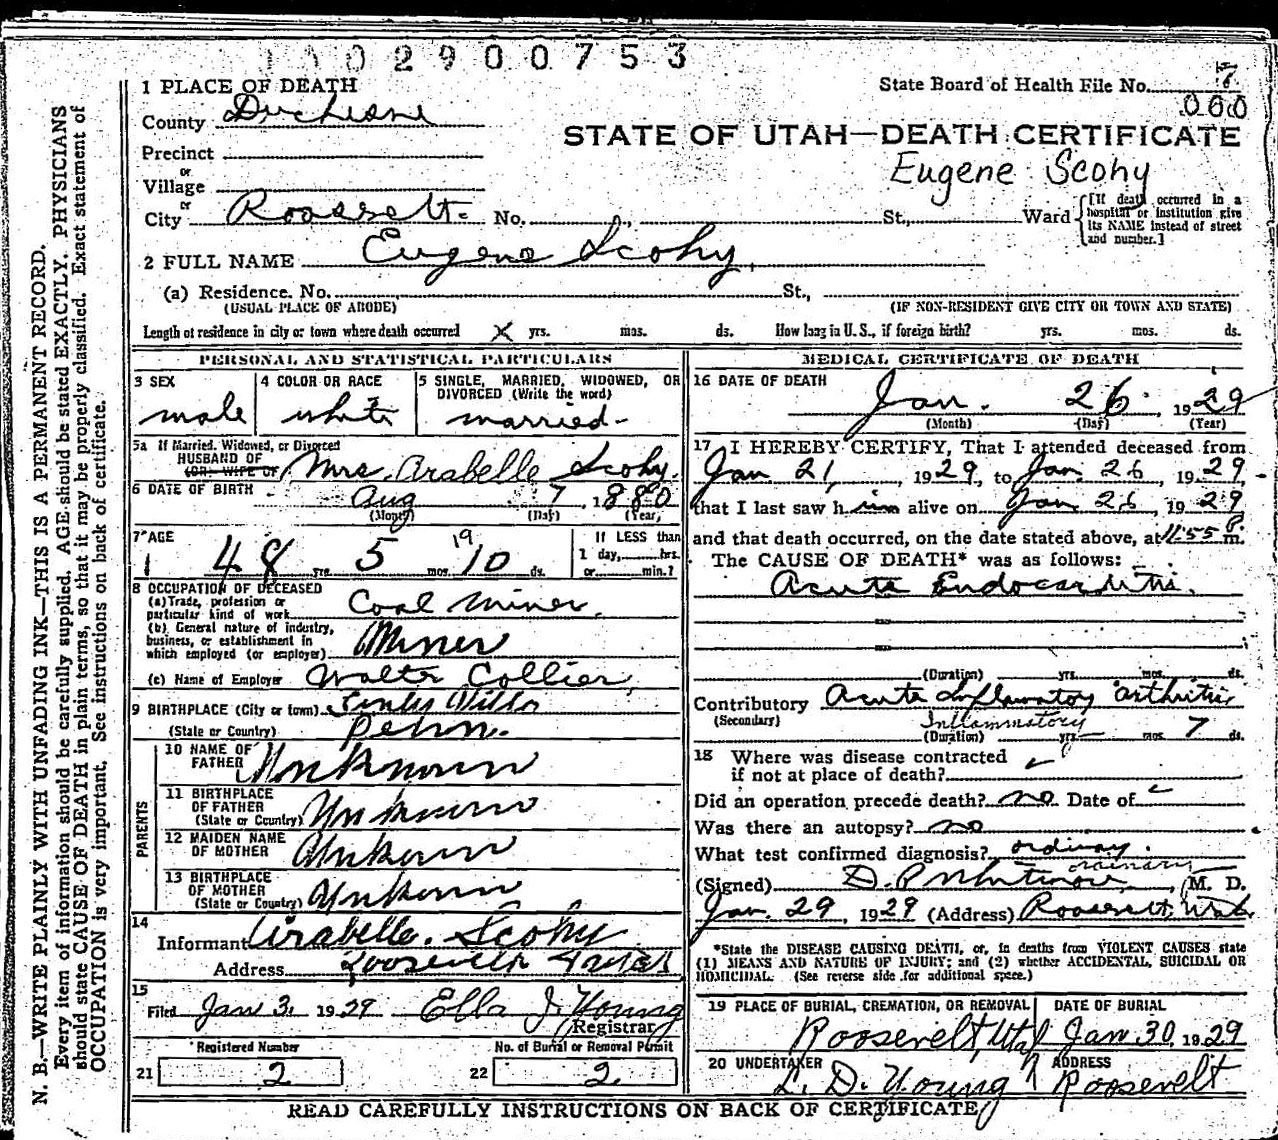 0 0 2 9 0 0 7 5 3
1 PLACE OF DEATH
State Board of Health File No. 7
000
County Duchesne
STATE OF UTAH—DEATH CERTIFICATE
Precinct
Eugene Scohy
or
Village
or
City Roosevelt. No. St., Ward
[If death occurred in a hospital or institution give its NAME instead of street and number.]
2 FULL NAME Eugene Scohy
(a) Residence. No. St.,
(USUAL PLACE OF ABODE) (IF NON-RESIDENT GIVE CITY OR TOWN AND STATE)
Length of residence in city or town where death occurred X yrs. mos. ds. How long in U. S., if foreign birth? yrs. mos. ds.
PERSONAL AND STATISTICAL PARTICULARS
3 SEX male
4 COLOR OR RACE white
5 SINGLE, MARRIED, WIDOWED, OR DIVORCED (Write the word)
married
5a If Married, Widowed, or Divorced
HUSBAND OF
(OR) WIFE OF Mrs. Arabelle Scohy.
6 DATE OF BIRTH Aug 7, 1880
(Month) (Day) (Year)
7 AGE
48 yrs. 5 mos. 19 10 ds.
If LESS than
1 day, hrs.
or min.?
8 OCCUPATION OF DECEASED
(a) Trade, profession or
particular kind of work Coal Miner.
(b) General nature of industry,
business, or establishment in
which employed (or employer) Miner
(c) Name of Employer Walter Collier,
9 BIRTHPLACE (City or town)
(State or Country) Penn.
PARENTS
10 NAME OF
FATHER Unknown
11 BIRTHPLACE
OF FATHER
(State or Country) Unknown
12 MAIDEN NAME
OF MOTHER Unknown
13 BIRTHPLACE
OF MOTHER
(State or Country) Unknown
14
Informant Arabelle. Scohy
Address Roosevelt Utah
15
Filed Jan 3. 1929 Ella J. Young
Registrar
Registered Number No. of Burial or Removal Permit
21 2 22 2
MEDICAL CERTIFICATE OF DEATH
16 DATE OF DEATH
Jan. 26, 1929
(Month) (Day) (Year)
17 I HEREBY CERTIFY, That I attended deceased from
Jan 21, 1929, to Jan 26 1929,
that I last saw him alive on Jan 26, 1929
and that death occurred, on the date stated above, at 11:55 P. m.
The CAUSE OF DEATH* was as follows:
Acute Endocarditis.
(Duration) yrs. mos. ds.
Contributory Acute Inflamatory arthritis
(Secondary) Inflammatory
(Duration) yrs. mos. 7 ds.
18 Where was disease contracted
if not at place of death?
Did an operation precede death? no Date of
Was there an autopsy? no
What test confirmed diagnosis? ordinary.
ordinary
(Signed) D. P. Whitmore, M. D.
Jan. 29, 1929 (Address) Roosevelt, Utah
*State the DISEASE CAUSING DEATH, or, in deaths from VIOLENT CAUSES state
(1) MEANS AND NATURE OF INJURY; and (2) whether ACCIDENTAL, SUICIDAL OR
HOMICIDAL. (See reverse side for additional space.)
19 PLACE OF BURIAL, CREMATION, OR REMOVAL DATE OF BURIAL
Roosevelt, Utah Jan 30, 1929
20 UNDERTAKER ADDRESS
L. D. Young Roosevelt
READ CAREFULLY INSTRUCTIONS ON BACK OF CERTIFICATE
N. B.—WRITE PLAINLY WITH UNFADING INK—THIS IS A PERMANENT RECORD.
Every item of information should be carefully supplied. AGE should be stated EXACTLY. PHYSICIANS
should state CAUSE OF DEATH in plain terms, so that it may be properly classified. Exact statement of
OCCUPATION is very important. See instructions on back of certificate.